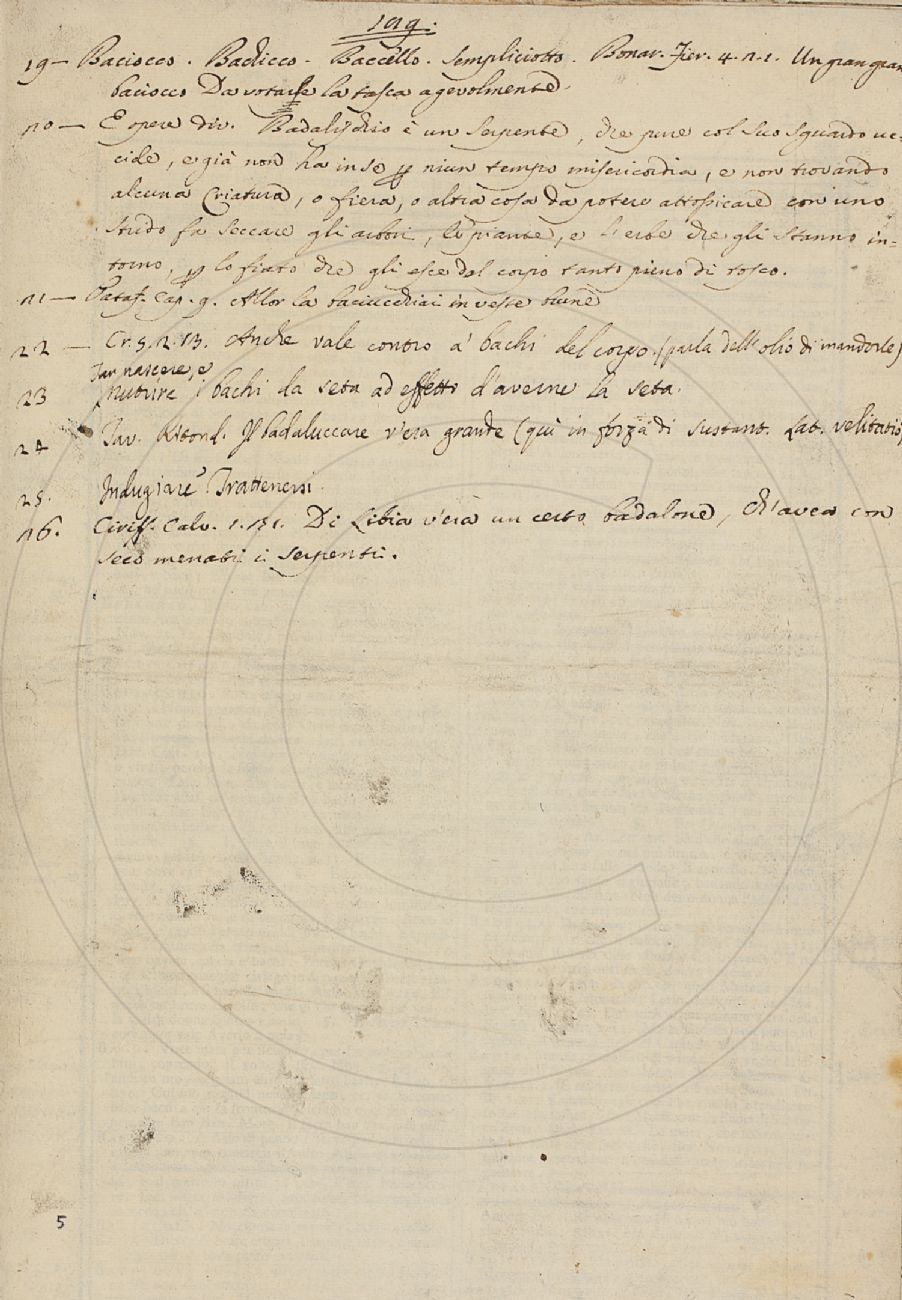 109.
19 — Baciocco. Bachicco - Baccello. Sempliciotto. Bonar. Fier. 4. 2. 1. Un gran gran
baciocco Da votarle la tasca agevolmente.
20 — E opere div. Badalischio è un serpente, che pure col suo sguardo uc-
cide, e già non ha in se p niun tempo misericordia, e non trovando
alcuna Criatura, o fiera, o altra cosa da potere attossicare con uno
strido fa seccare gli arbori, le piante, e l'erbe che gli stanno in-
torno, p lo fiato che gli esce del corpo tanto pieno di tosco.
21 — Pataf. Cap. 9. Allor la baciucchiai in veste
22 — Cr. 5. 2. 13. Anche vale contro a' bachi del corpo. (parla dell'olio di mandorle)
Far nascere, e
23 Nutrire i bachi da seta ad effetto d'averne la seta.
24 Tav. Ritond. Il badaluccare v'era grande (qui in forza di sustant. Lat. velitatio)
25. Indugiare Trattenersi.
26. Ciriff. Calv. 1. 131. Di Libia v'era un certo badalone, Ch'avea con
seco menati i serpenti.
5